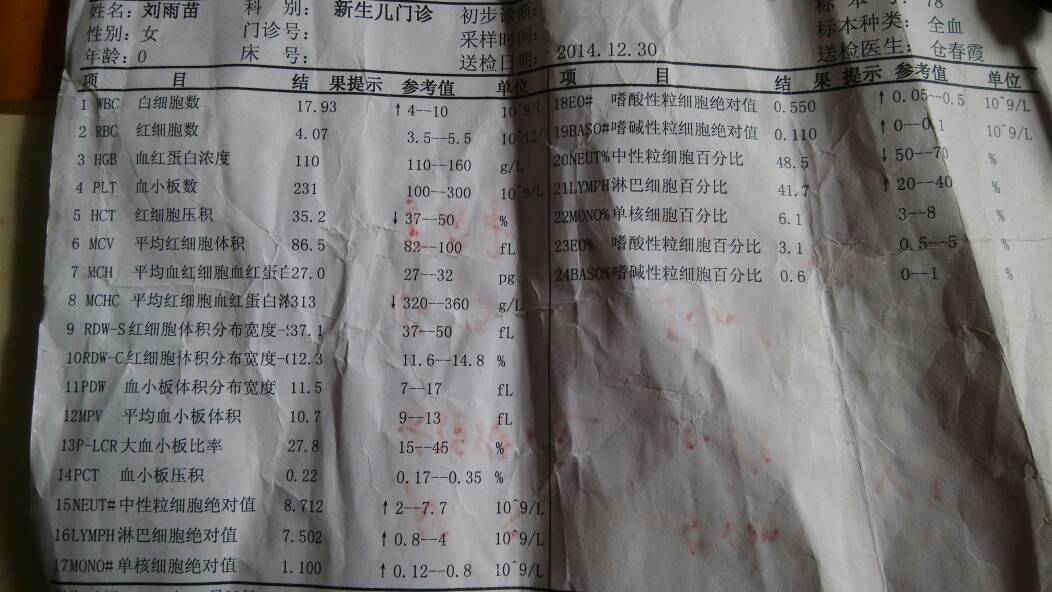 姓名: 刘雨苗 科 别: 新生儿门诊 初步诊断: 标 本 号: 78
性别: 女 门诊号: 采样时间: 标本种类: 全血
年龄: 0 床 号: 送检日期: 2014.12.30 送检医生: 仓春霞
项 目 结 果提示 参考值 单位 项 目 结 果 提示 参考值 单位
1 WBC 白细胞数 17.93 ↑ 4--10 10^9/L 18EO# 嗜酸性粒细胞绝对值 0.550 ↑ 0.05--0.5 10^9/L
2 RBC 红细胞数 4.07 3.5--5.5 10^12/L 19BASO# 嗜碱性粒细胞绝对值 0.110 ↑ 0--0.1 10^9/L
3 HGB 血红蛋白浓度 110 110--160 g/L 20NEUT% 中性粒细胞百分比 48.5 ↓ 50--70 %
4 PLT 血小板数 231 100--300 10^9/L 21LYMPH 淋巴细胞百分比 41.7 ↑ 20--40 %
5 HCT 红细胞压积 35.2 ↓ 37--50 % 22MONO% 单核细胞百分比 6.1 3--8 %
6 MCV 平均红细胞体积 86.5 82--100 fL 23EO% 嗜酸性粒细胞百分比 3.1 0.5--5 %
7 MCH 平均血红细胞血红蛋白 27.0 27--32 pg 24BASO% 嗜碱性粒细胞百分比 0.6 0--1 %
8 MCHC 平均红细胞血红蛋白浓 313 ↓ 320--360 g/L
9 RDW-S 红细胞体积分布宽度- 37.1 37--50 fL
10RDW-C 红细胞体积分布宽度-( 12.3 11.6--14.8 %
11PDW 血小板体积分布宽度 11.5 7--17 fL
12MPV 平均血小板体积 10.7 9--13 fL
13P-LCR 大血小板比率 27.8 15--45 %
14PCT 血小板压积 0.22 0.17--0.35 %
15NEUT# 中性粒细胞绝对值 8.712 ↑ 2--7.7 10^9/L
16LYMPH 淋巴细胞绝对值 7.502 ↑ 0.8--4 10^9/L
17MONO# 单核细胞绝对值 1.100 ↑ 0.12--0.8 10^9/L